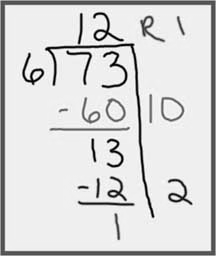 12 R 1
6)73
-60 10
13
-12 2
1